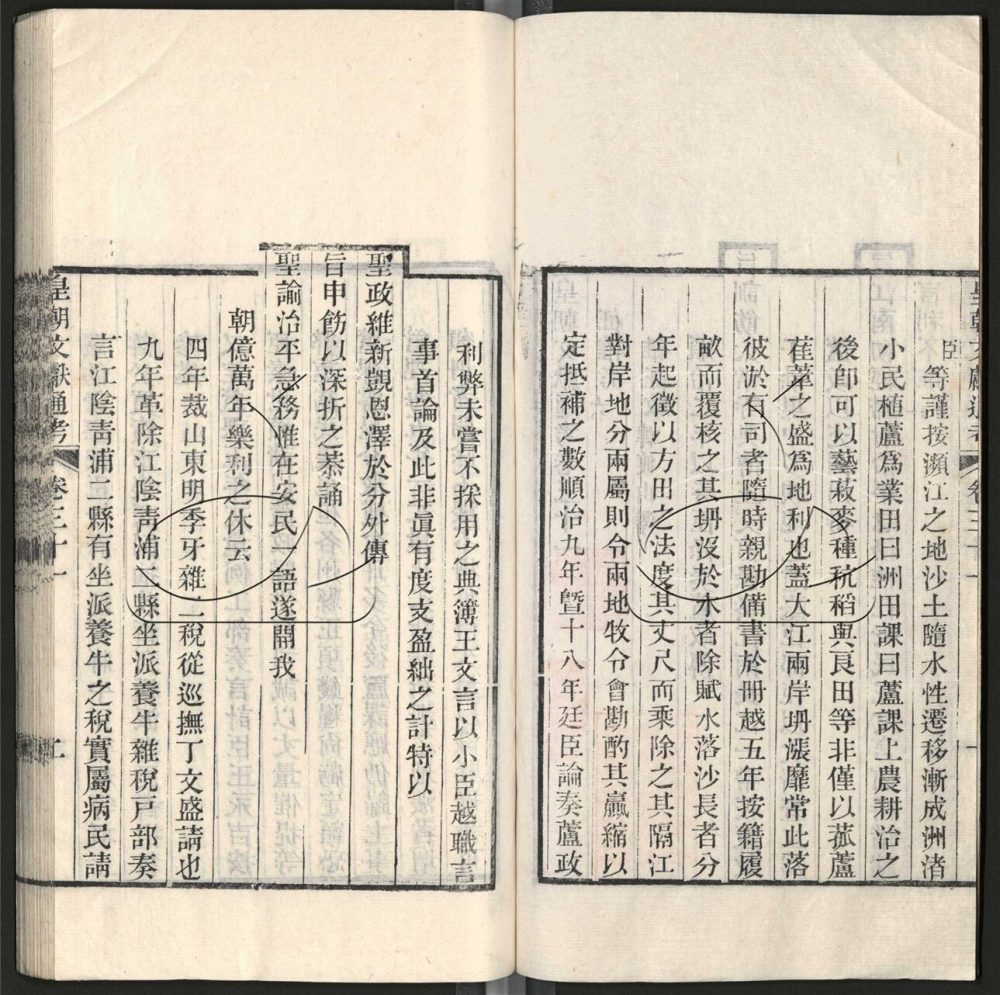 皇朝文獻通考 卷三十一
臣等謹按瀕江之地沙土隨水性遷移漸成洲渚
小民植蘆為業田曰洲田課曰蘆課上農耕治之
後卽可以藝菽麥種秔稻與良田等非僅以菰蘆
萑葦之盛爲地利也蓋大江兩岸坍漲靡常此落
彼淤有司者隨時親勘備書於冊越五年按籍履
畝而覆核之其坍沒於水者除賦水落沙長者分
年起徵以方田之法度其丈尺而乘除之其隔江
對岸地分兩屬則令兩地牧令會勘酌其贏縮以
定抵補之數順治九年曁十八年廷臣論奏蘆政
利弊未嘗不採用之典簿王文言以小臣越職言
事首論及此非眞有度支盈絀之計特以
聖政維新覬恩澤於分外傳
旨申飭以深折之恭誦
聖諭治平急務惟在安民一語遂開我
朝億萬年樂利之休云
四年裁山東明季牙雜二稅從巡撫丁文盛請也
九年革除江陰青浦二縣坐派養牛雜稅戸部奏
言江陰青浦二縣有坐派養牛之稅實屬病民請
皇朝文獻通考 卷三十一